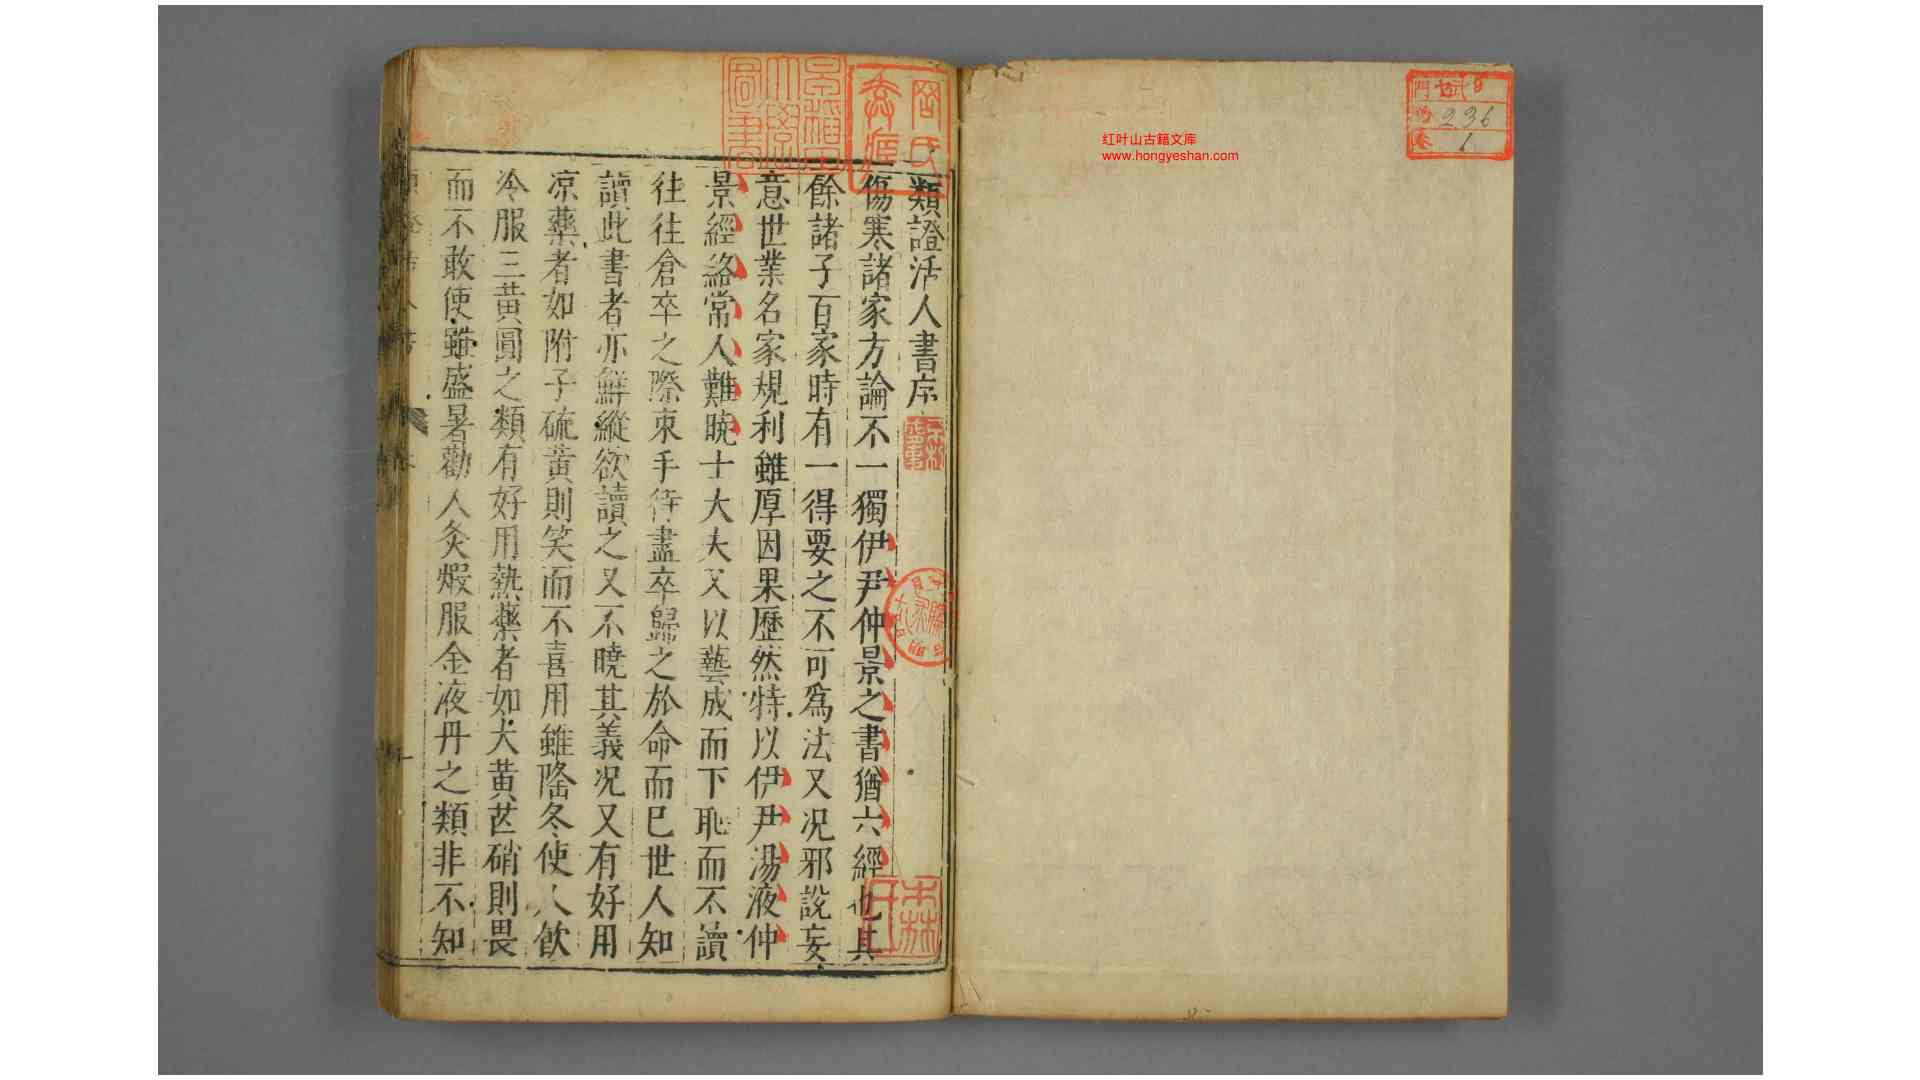 類證活人書序
傷寒諸家方論不一獨伊尹仲景之書猶六經也其
餘諸子百家時有一得要之不可爲法又况邪說妄
意世業名家規利雖厚因果歷然特以伊尹湯液仲
景經絡常人難曉士大夫又以藝成而下恥而不讀
往往倉卒之際束手待盡卒歸之於命而已世人知
讀此書者亦鮮縱欲讀之又不曉其義况又有好用
凉藥者如附子硫黃則笑而不喜用雖隆冬使人飲
冷服三黃圓之類有好用熱藥者如大黃芒硝則畏
而不敢使雖盛暑勸人灸煆服金液丹之類非不知
红叶山古籍文库
www.hongyeshan.com
236
1